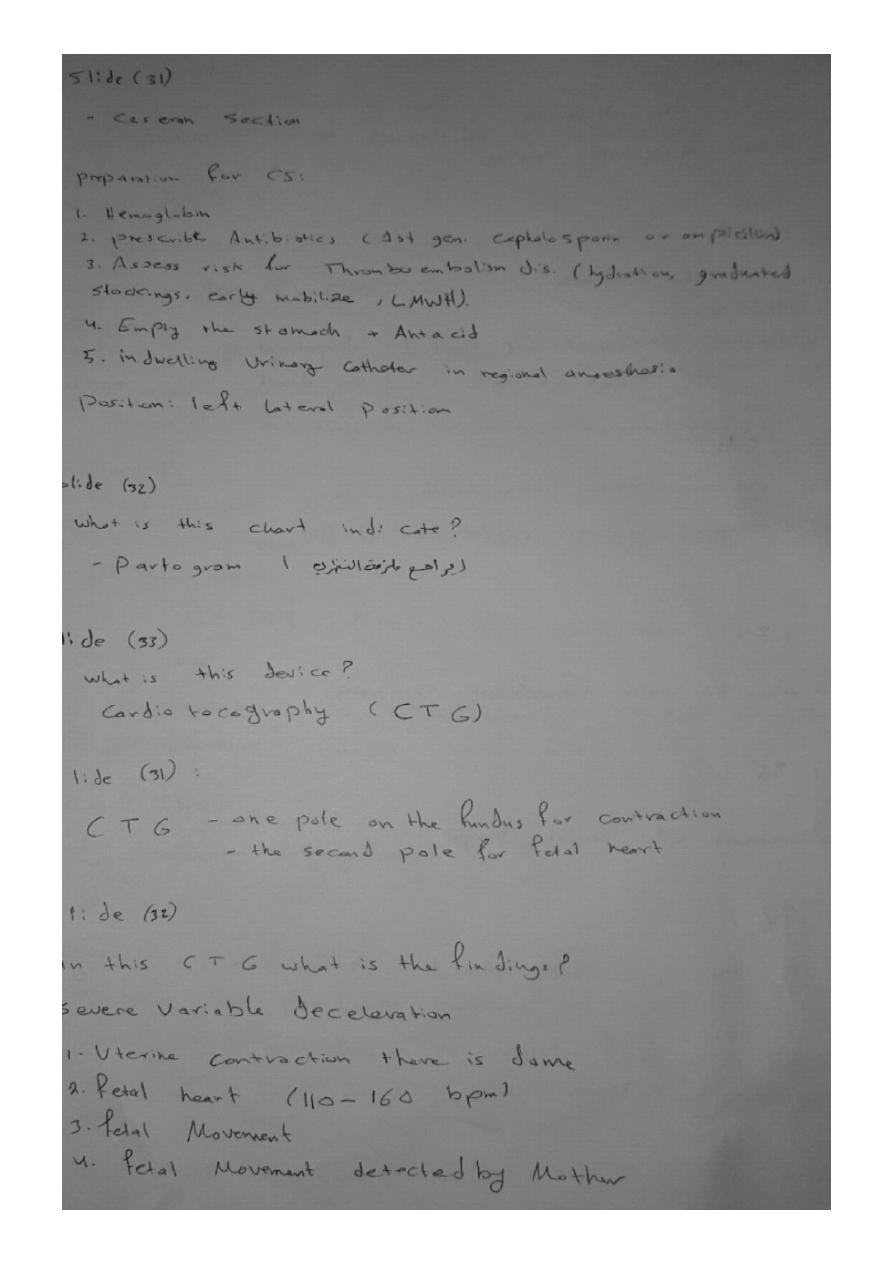 Slide (31)
- Ceseran Section
preparation for CS:
1. Hemoglobin
2. prescribe Antibiotics (1st gen. cephalosporin or ampicillin)
3. Assess risk for Thrombo embolism dis. (hydration, graduated
stockings, early mobilize, LMWH).
4. Empty the stomach + Antacid
5. indwelling Urinary Catheter in regional anaesthesia
Position: left lateral position
slide (32)
What is this chart indicate?
- Partogram
lide (33)
What is this device?
Cardiotocography (CTG)
lide (31):
CTG - one pole on the fundus for contraction
- the second pole for fetal heart
lide (32)
in this CTG what is the findings?
Severe Variable deceleration
1. Uterine contraction there is dome
2. fetal heart (110-160 bpm)
3. fetal Movement
4. fetal Movement detected by Mother